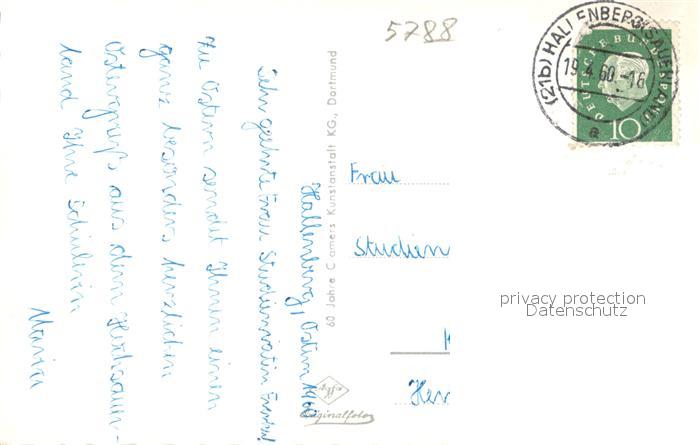 5788
(21b) HALLENBERG (SAUERLAND)
19.4.60.-16
a
DEUTSCHE BUNDESPOST
10
Hallenberg, Ostern 1960
Sehr geehrte Frau Studienrätin
Zu Ostern sendet Ihnen einen
ganz besonders herzlichen
Ostergruß aus dem Hochsauer-
land Ihre Schülerin
Maria
60 Jahre Cramers Kunstanstalt KG., Dortmund
Agfa
Originalfoto
Frau
Studien
H
Her
privacy protection
Datenschutz